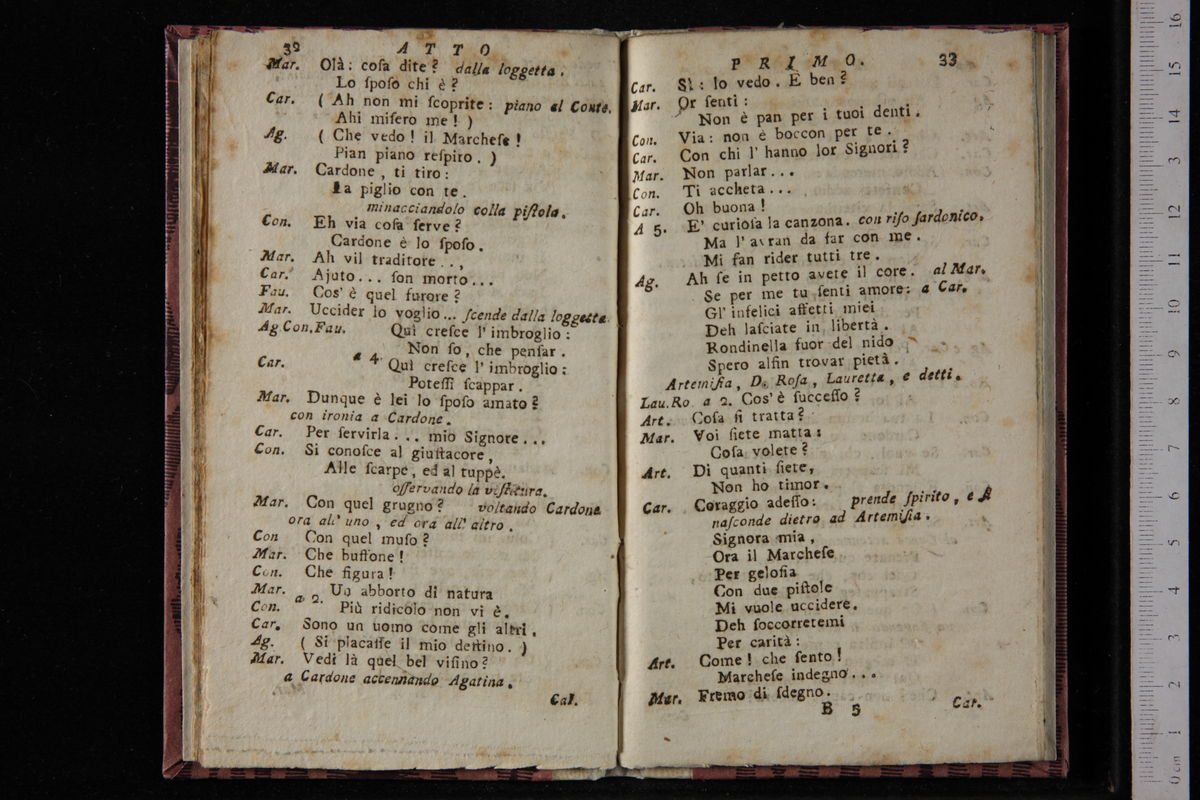 32 ATTO
Mar. Olà: coſa dite? dalla loggetta.
Lo ſpoſo chi è?
Car. (Ah non mi ſcoprite: piano al Conte.
Ahi miſero me!)
Ag. (Che vedo! il Marcheſe!
Pian piano reſpiro.)
Mar. Cardone, ti tiro:
La piglio con te.
minacciandolo colla piſtola.
Con. Eh via coſa ſerve?
Cardone è lo ſpoſo.
Mar. Ah vil traditore...,
Car. Ajuto... ſon morto...
Fau. Cos' è quel furore?
Mar. Uccider lo voglio... ſcende dalla loggetta.
Ag.Con.Fau. Quì creſce l' imbroglio:
Non ſo, che penſar.
a 4.
Car. Quì creſce l' imbroglio:
Poteſſi ſcappar.
Mar. Dunque è lei lo ſpoſo amato?
con ironia a Cardone.
Car. Per ſervirla... mio Signore...
Con. Si conoſce al giuſtacore,
Alle ſcarpe, ed al tuppè.
oſſervando la veſtitura.
Mar. Con quel grugno? voltando Cardone
ora all' uno, ed ora all' altro.
Con Con quel muſo?
Mar. Che buffone!
Con. Che figura!
Mar. Un abborto di natura
a 2.
Con. Più ridicolo non vi è.
Car. Sono un uomo come gli altri.
Ag. (Si placaſſe il mio deſtino.)
Mar. Vedi là quel bel viſino?
a Cardone accennando Agatina.
Cal.
PRIMO. 33
Car. Sì: lo vedo. E ben?
Mar. Or ſenti:
Non è pan per i tuoi denti.
Con. Via: non è boccon per te.
Car. Con chi l' hanno lor Signori?
Mar. Non parlar...
Con. Ti accheta...
Car. Oh buona!
A 5. E' curioſa la canzona. con riſo ſardonico.
Ma l' avran da far con me.
Mi fan rider tutti tre.
Ag. Ah ſe in petto avete il core. al Mar.
Se per me tu ſenti amore: a Car.
Gl' infelici affetti miei
Deh laſciate in libertà.
Rondinella fuor del nido
Spero alfin trovar pietà.
Artemiſia, D. Roſa, Lauretta, e detti.
Lau.Ro a 2. Cos' è ſucceſſo?
Art. Coſa ſi tratta?
Mar. Voi ſiete matta:
Coſa volete?
Art. Di quanti ſiete,
Non ho timor.
Car. Coraggio adeſſo: prende ſpirito, e ſi
naſconde dietro ad Artemiſia.
Signora mia,
Ora il Marcheſe
Per geloſia
Con due piſtole
Mi vuole uccidere.
Deh ſoccorretemi
Per carità:
Art. Come! che ſento!
Marcheſe indegno...
Mar. Fremo di ſdegno.
B 5 Car.
0 cm 1 2 3 4 5 6 7 8 9 10 11 12 13 14 15 16